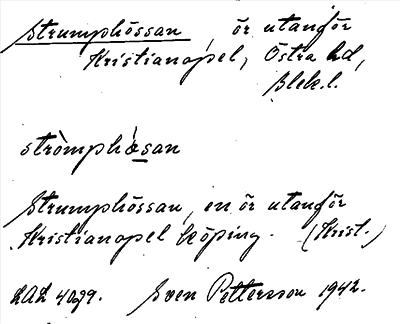 Strumphössan, ör utanför
Kristianopel, Östra hd,
Blek.l.
stròmphǿsan
Strumphössan, en ör utanför
Kristianopel köping. (Krist.)
LAL 4029. Sven Pettersson 1942.